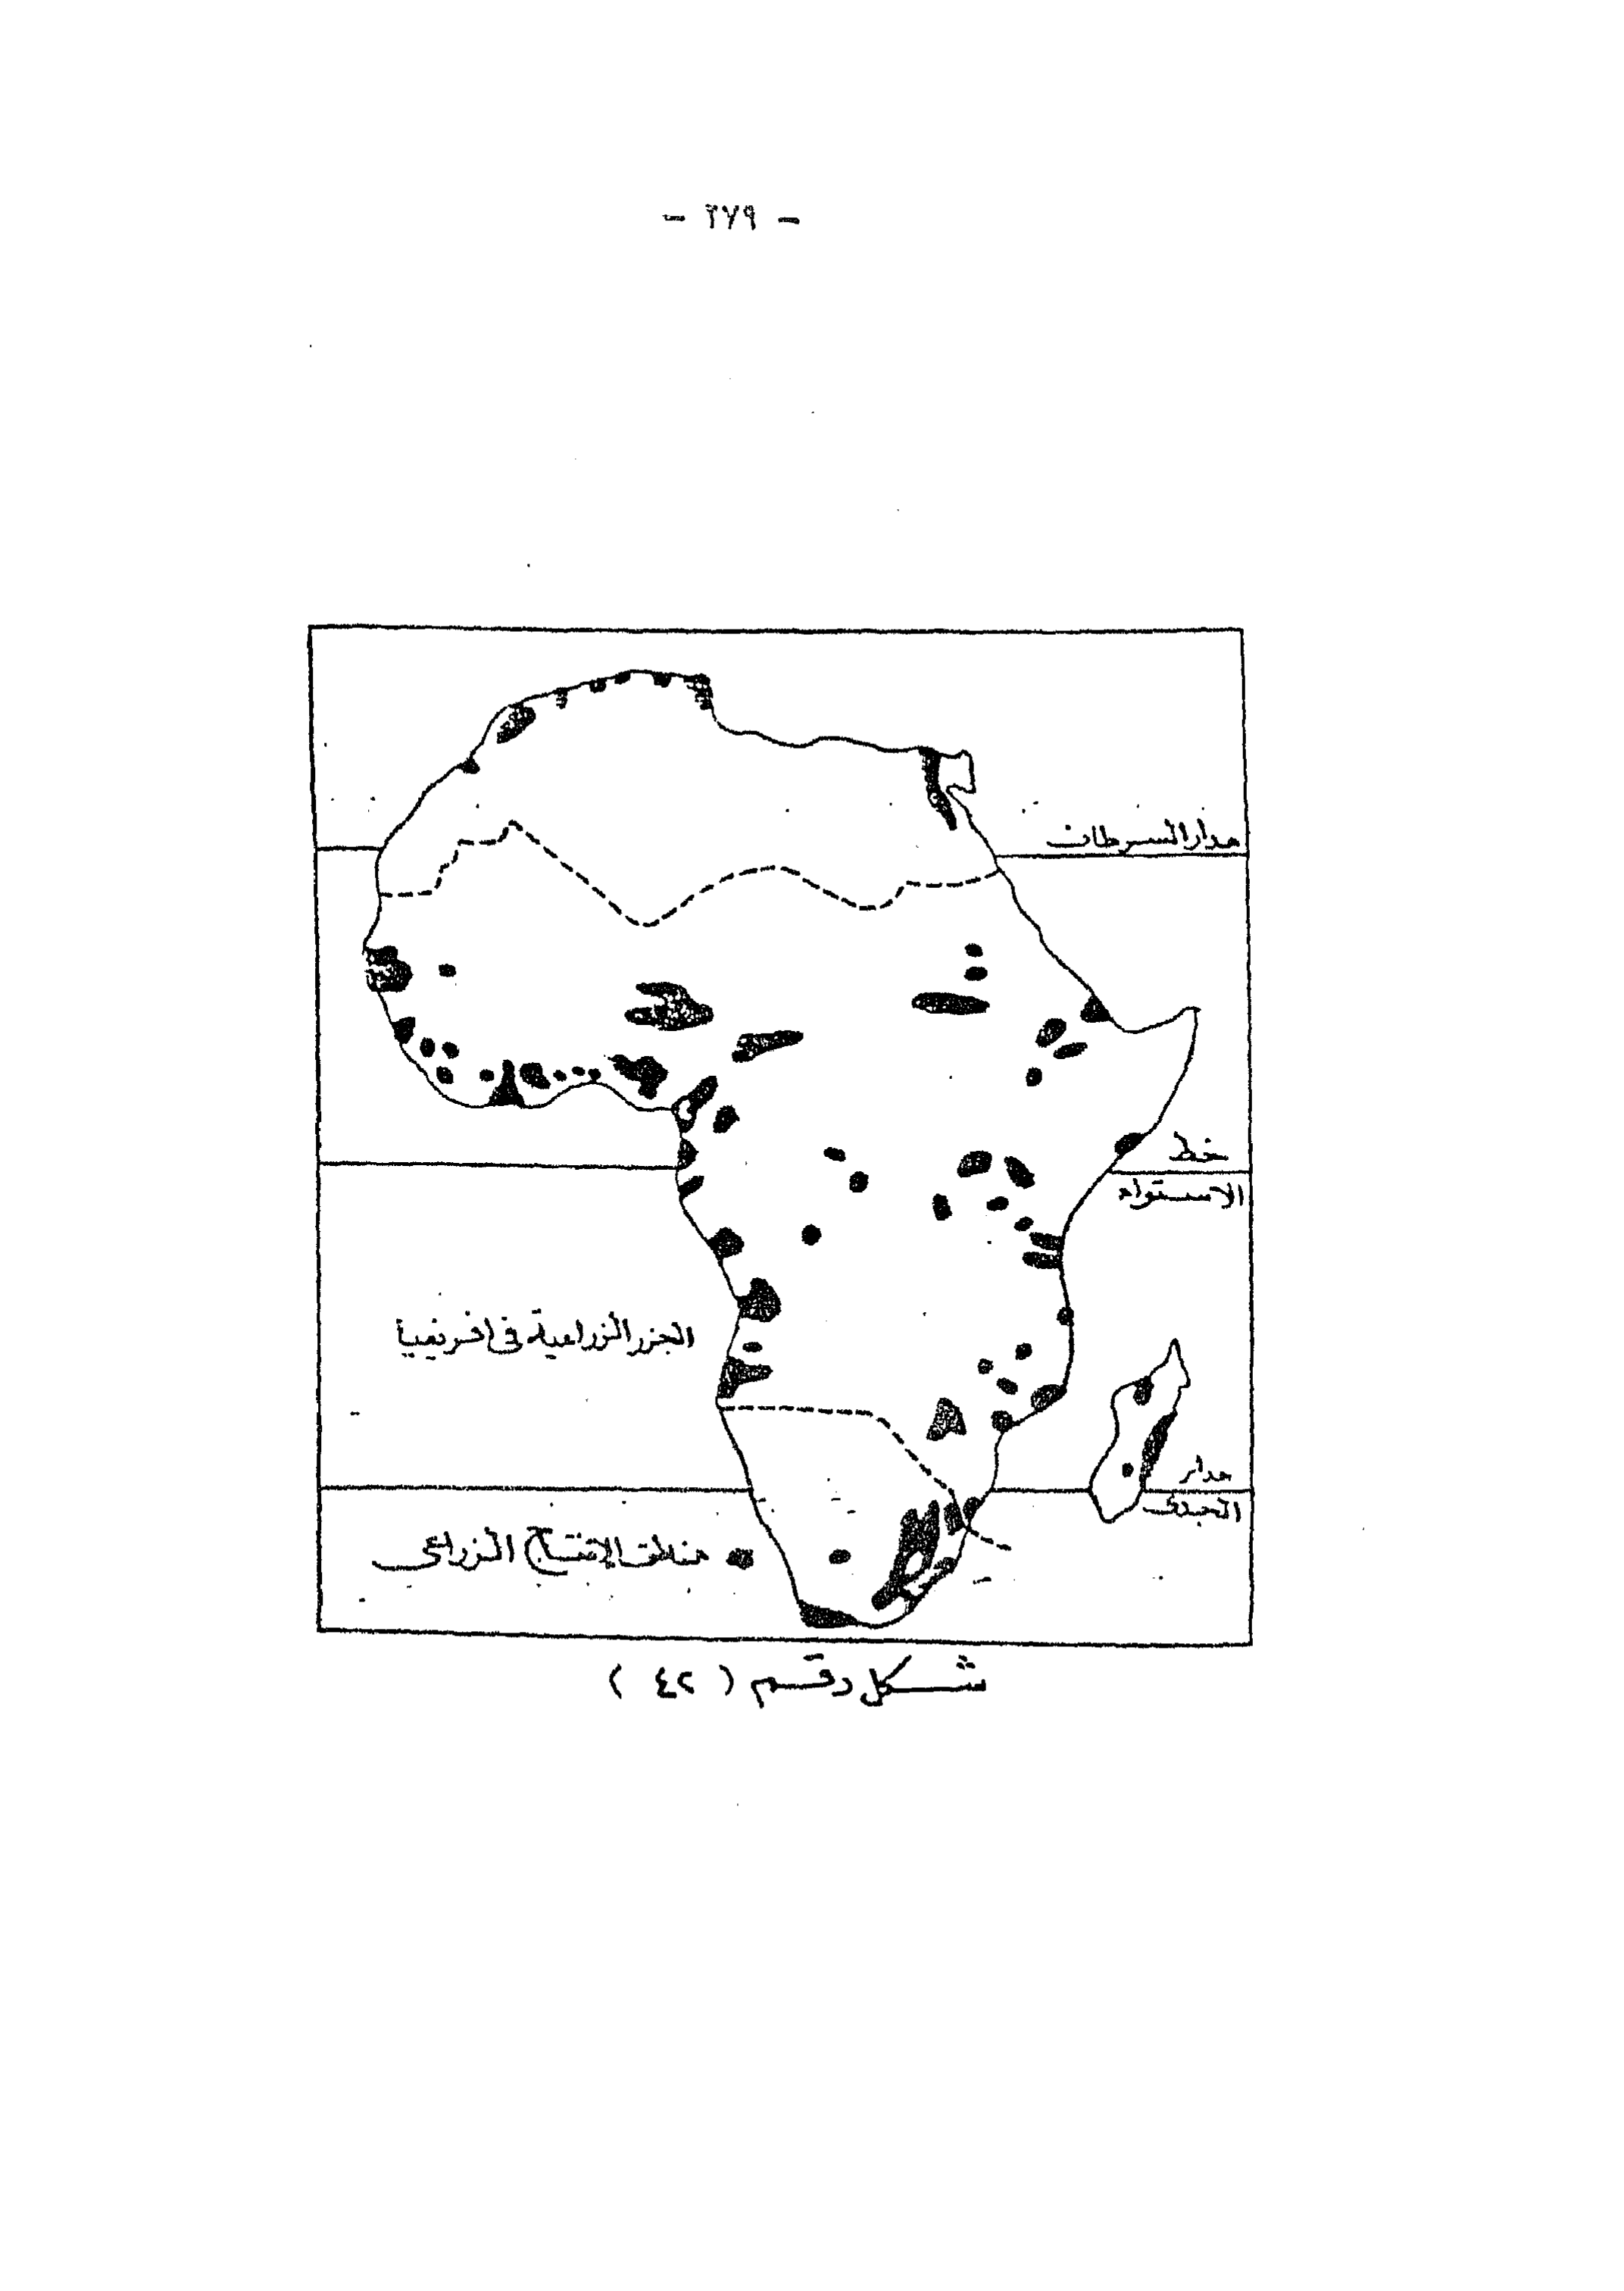 - ٢٧٩ -
مدار السرطان
خط
الاستواء
الجزر الزراعية فى افريقيا
مدار
الجدى
مناطق الإنتاج الزراعى
شكل رقم ( ٤٢ )